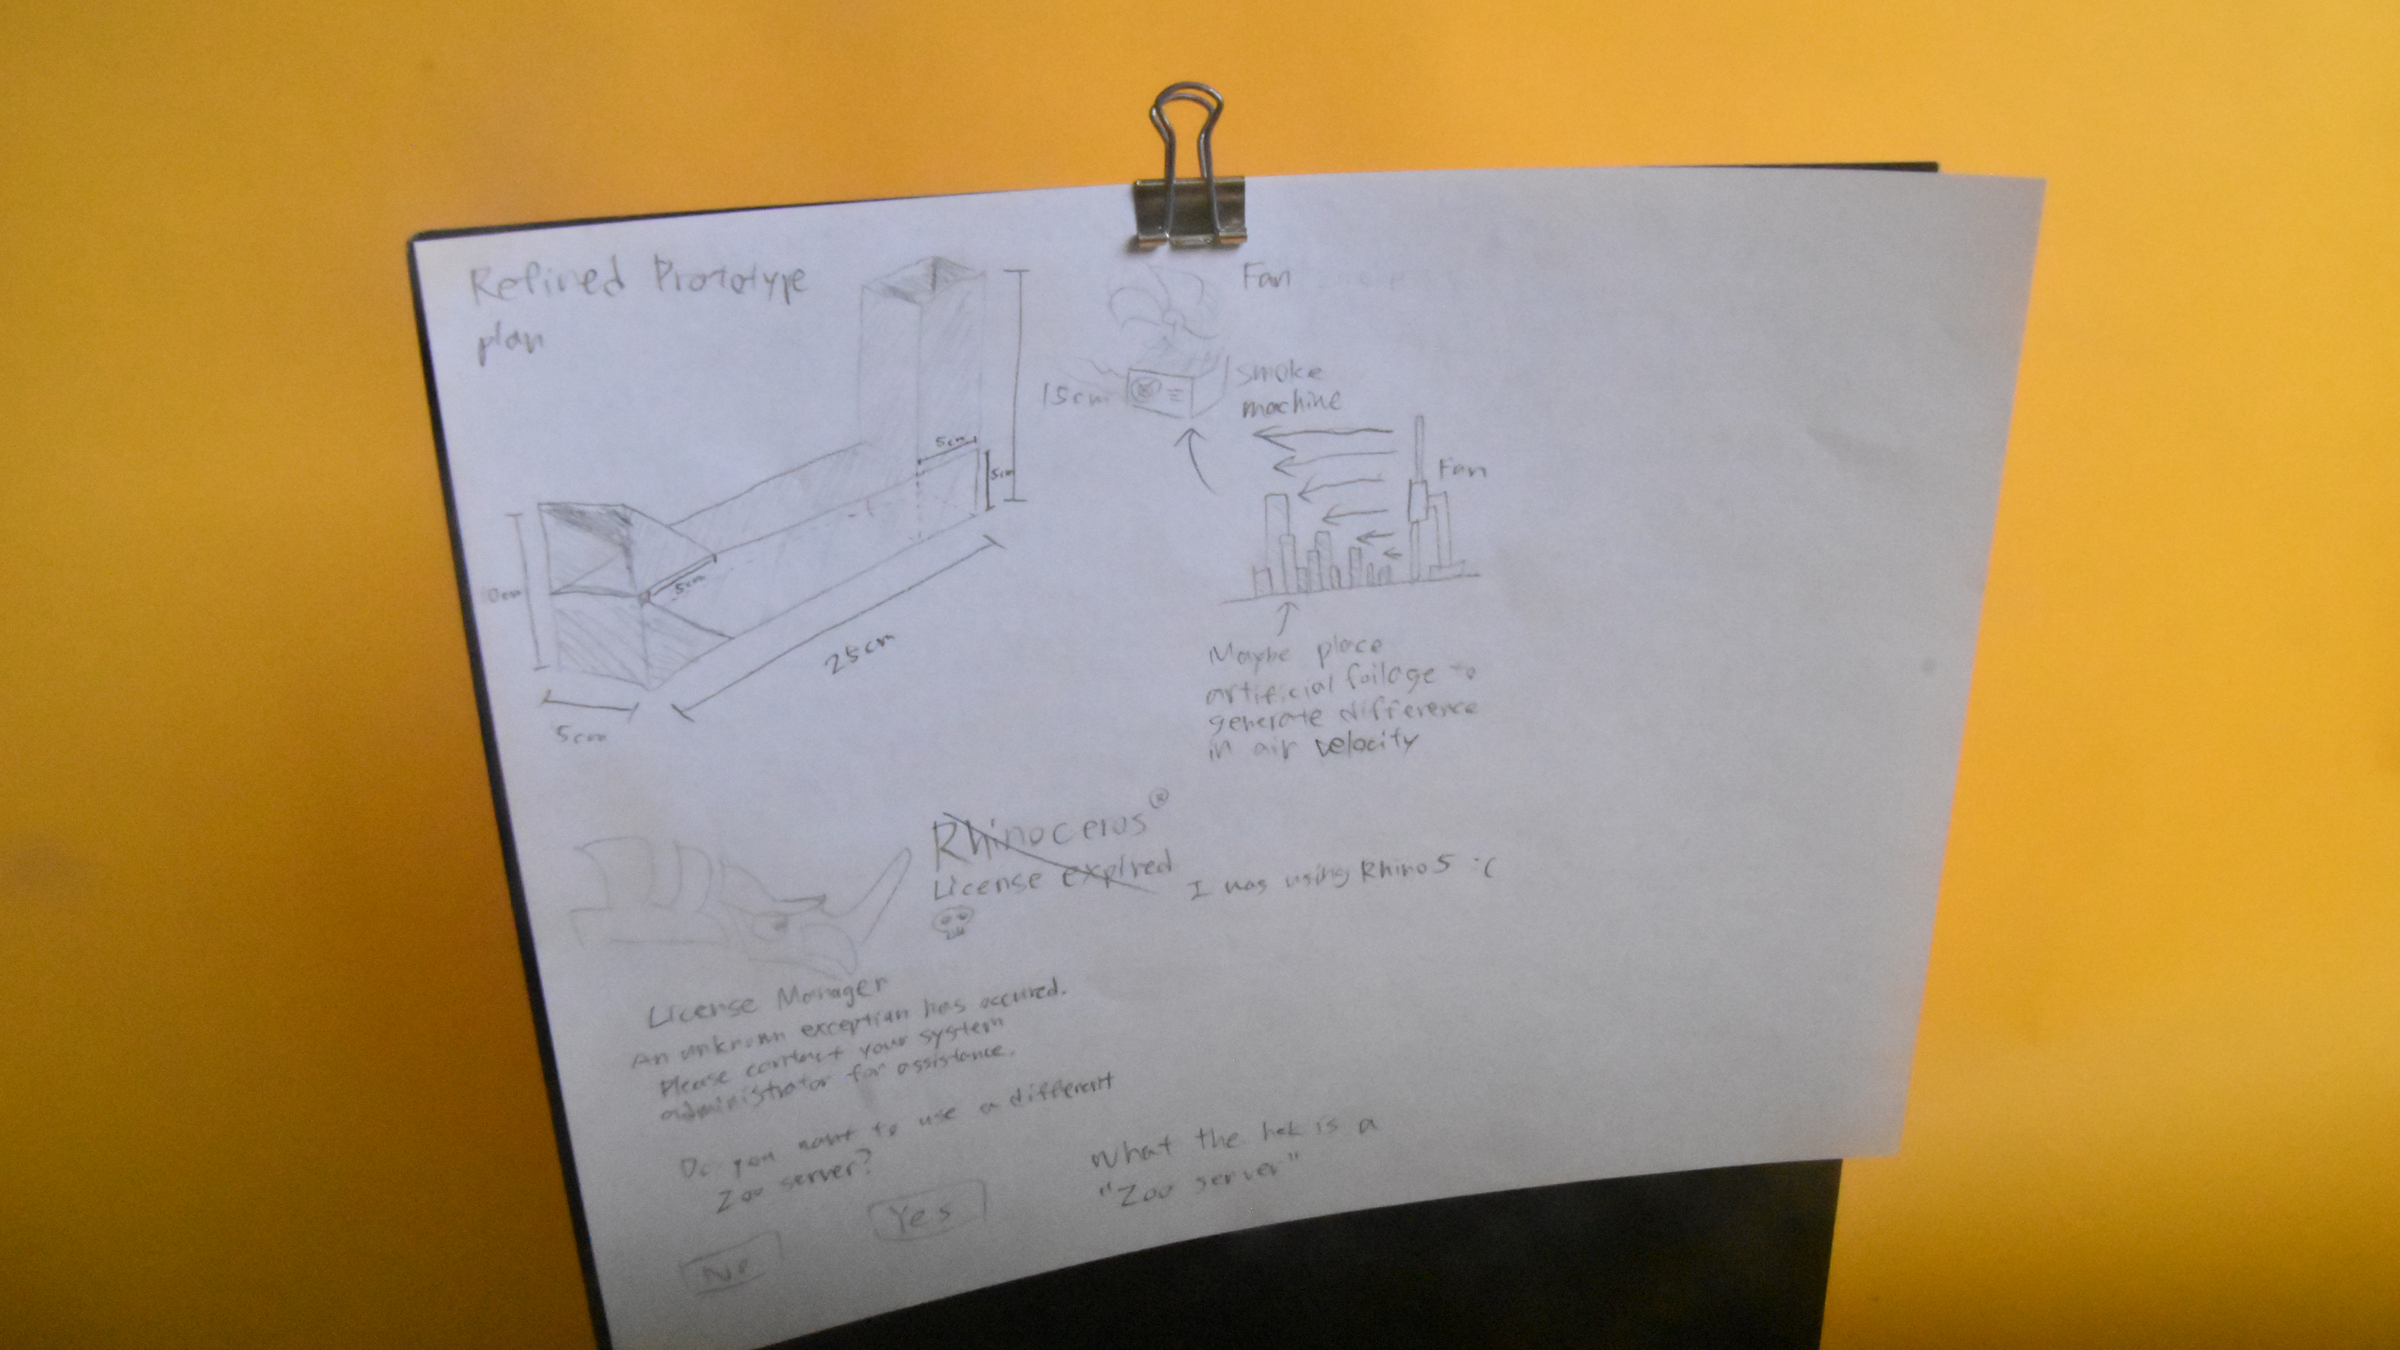 Refined Prototype
plan
5cm
5cm
15cm
5cm
25cm
5cm
Fan
smoke
machine
Fan
Maybe place
artificial foilage to
generate difference
in air velocity
Rhinoceros®
License expired
I was using Rhino5 :(
License Manager
An unknown exception has occured.
Please contact your system
administrator for assistance.
Do you want to use a different
Zoo server?
No
Yes
What the hek is a
"Zoo server"